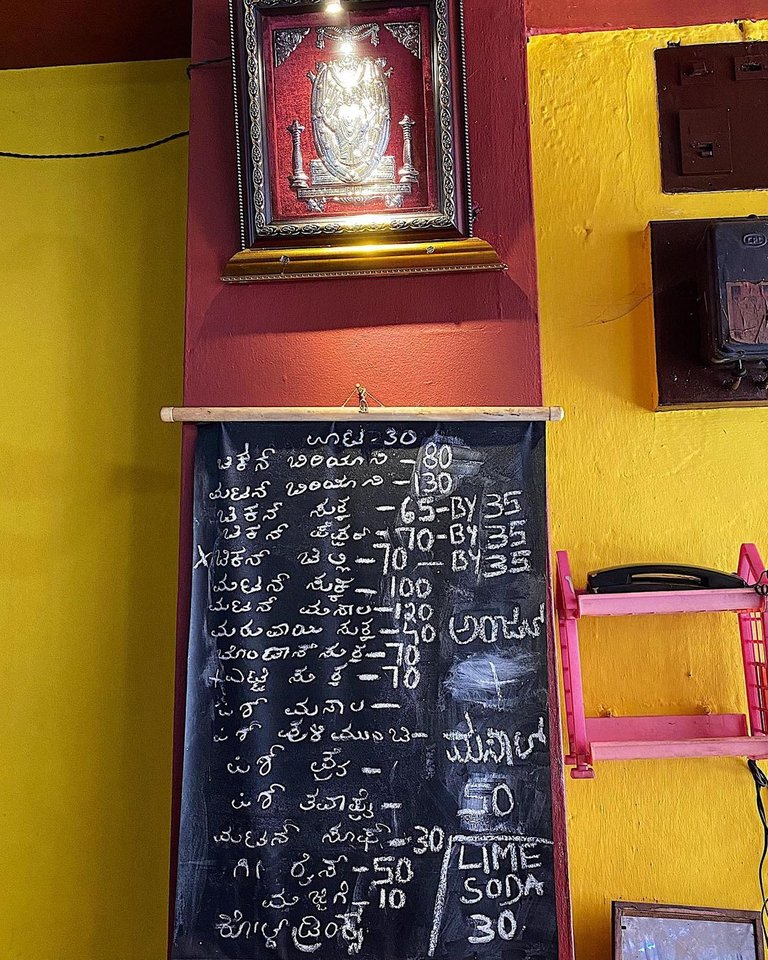 ಊಟ - 30
ಚಿಕನ್ ಬಿರಿಯಾನಿ - 80
ಮಟನ್ ಬಿರಿಯಾನಿ - 130
ಚಿಕನ್ ಸುಕ್ಕ - 65 - BY 35
ಚಿಕನ್ ಪೆಪ್ಪರ್ - 70 - BY 35
X ಚಿಕನ್ ಚಿಲ್ಲಿ - 70 - BY 35
ಮಟನ್ ಸುಕ್ಕ - 100
ಮಟನ್ ಮಸಾಲ - 120
ಮರುವಾಯಿ ಸುಕ್ಕ - 40
ಬೊಂಡಾಸ್ ಸುಕ್ಕ - 70
+ ಎಟ್ಟಿ ಸುಕ್ಕ - 70
ಪಿಶ್ ಮಸಾಲ -
ಪಿಶ್ ಪುಳಿಮುಂಚಿ -
ಪಿಶ್ ಪ್ರೈ -
ಪಿಶ್ ತವಾಪ್ರೈ -
ಮಟನ್ ಸೂಫ್ - 30
ಗೀ ರೈಸ್ - 50
ಮಜ್ಜಿಗೆ - 10
ಕೋಲ್ಡ್ ಡ್ರಿಂಕ್ಸ್
+
ಮಸಾಲ್
50
LIME
SODA
30